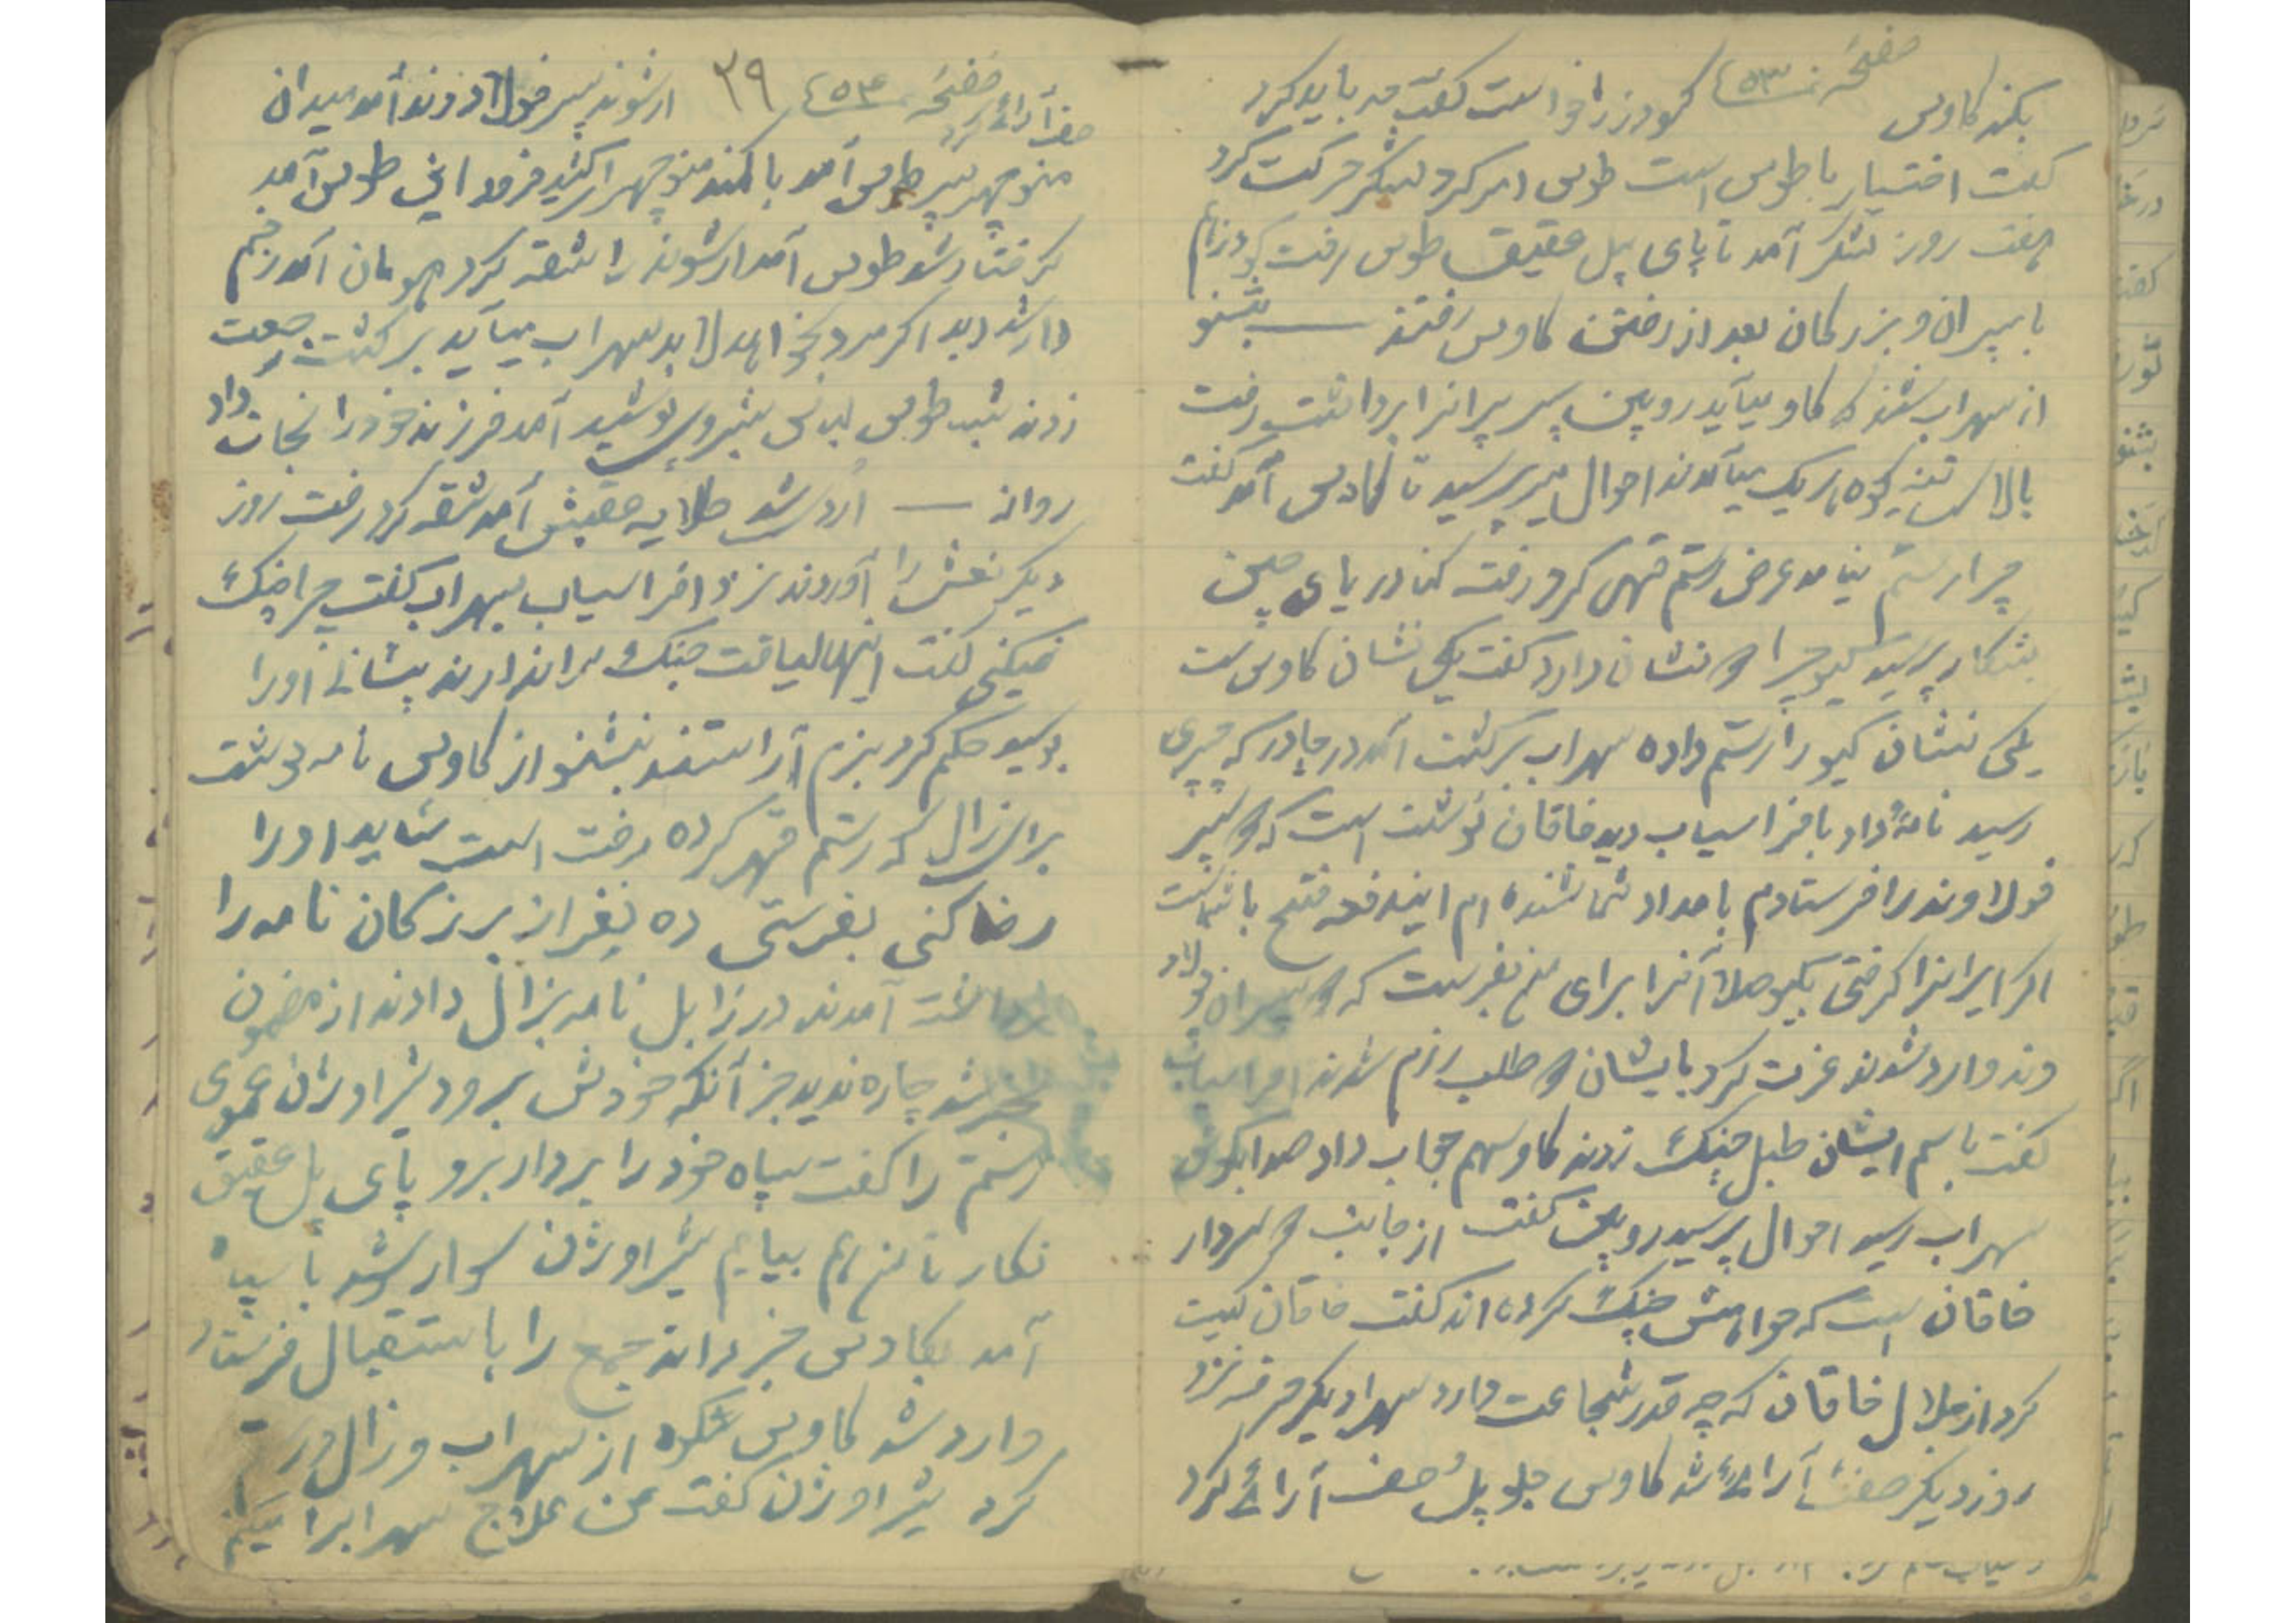 صفحه ۵۳
بکند کاوس گودرز را خواست گفت چه باید کرد
گفت اختیار با طوس است طوس امر کرد لشکر حرکت کرد
هفت روز لشکر آمد تا پای پل عقیق طوس رفت گودرز هم
با پیران و بزرگان بعد از رفتن کاوس رفتند — بشنو
از سهراب شنو که کاوس میآید رویین پسر پیرانرا برداشت رفت
بالای کوه یک یک میآمدند احوال میپرسید تا کاوس آمد گفت
چرا رستم نیامد عرض رستم قهر کرد رفته کنار دریای چین
بشکار پرسید گیو چرا دو نشان دارد گفت یکی نشان کاوس ست
یکی نشان گیو را رستم داده سهراب برگشت آمد در چادر که چپری
رسید نامه داد بافراسیاب دید خاقان نوشته است که دو پسر
فولادوند را فرستادم بامداد شما شنیده ام ایندفعه فتح با شماست
اگر ایرانرا گرفتی گیو آنرا برای من بفرست که دو پسران فولاد
وند وارد شوند عزت کرد بایشان دو طلب رزم شدند افراسیاب
گفت باسم ایشان طبل جنگ زدند کاوسهم جواب داد صدا بگوش
سهراب رسید احوال پرسید رویین گفت از جانب دو سردار
خاقان است که خواهش جنگ کرده اند گفت خاقان کیست
کرد از جلال خاقان که چه قدر شجاعت دارد سهراب دیگر حرف نزد
روز دیگر صف آرائی شد کاوس جلو پل صف آرائی کرد
صفحه ۵۴ ۲۹
صف آرائی کرد ارشوند پسر فولادوند آمد میدان
منوچهر پسر طوس آمد با کمند منوچهر را کشید فرود این طوس آمد
گرفتار شد طوس آمد ارشوند را شقه کرد هومان آمد زخم
دار شد دید اگر مرد بخواهد لابد سهراب میآید برگشت رجعت
زدند شب طوس لباس شبروی پوشید آمد فرزند خود را نجات داد
روانه — اردو شد طلایه پیش آمد شقه کرد رفت روز
دیگر نعش را آوردند نزد افراسیاب بسهراب گفت چرا جنگ
نمیکنی گفت اینها لیاقت جنگ مرا ندارند پیشانی اورا
بوسید حکم کرد بزم آراستند بشنو از کاوس نامه نوشت
برای زال که رستم قهر کرده رفت است شاید اورا
رضا کنی بفرستی ده نفر از بزرگان نامه را
برداشت آمدند در زابل نامه بزال دادند از مضمون
خبر شد چاره ندید جز آنکه خودش برود شیراوژن عموی
رستم را گفت سپاه خود را بردار برو پای پل عقیق
نگار تا من هم بیایم شیراوژن سوار شد با سپاه
آمد بکاوس خبر دادند جمع را باستقبال فرستاد
وارد شد کاوس شکوه از سهراب و زال و رستم
کرد شیراوژن گفت من علاج سهرابرا میکنم